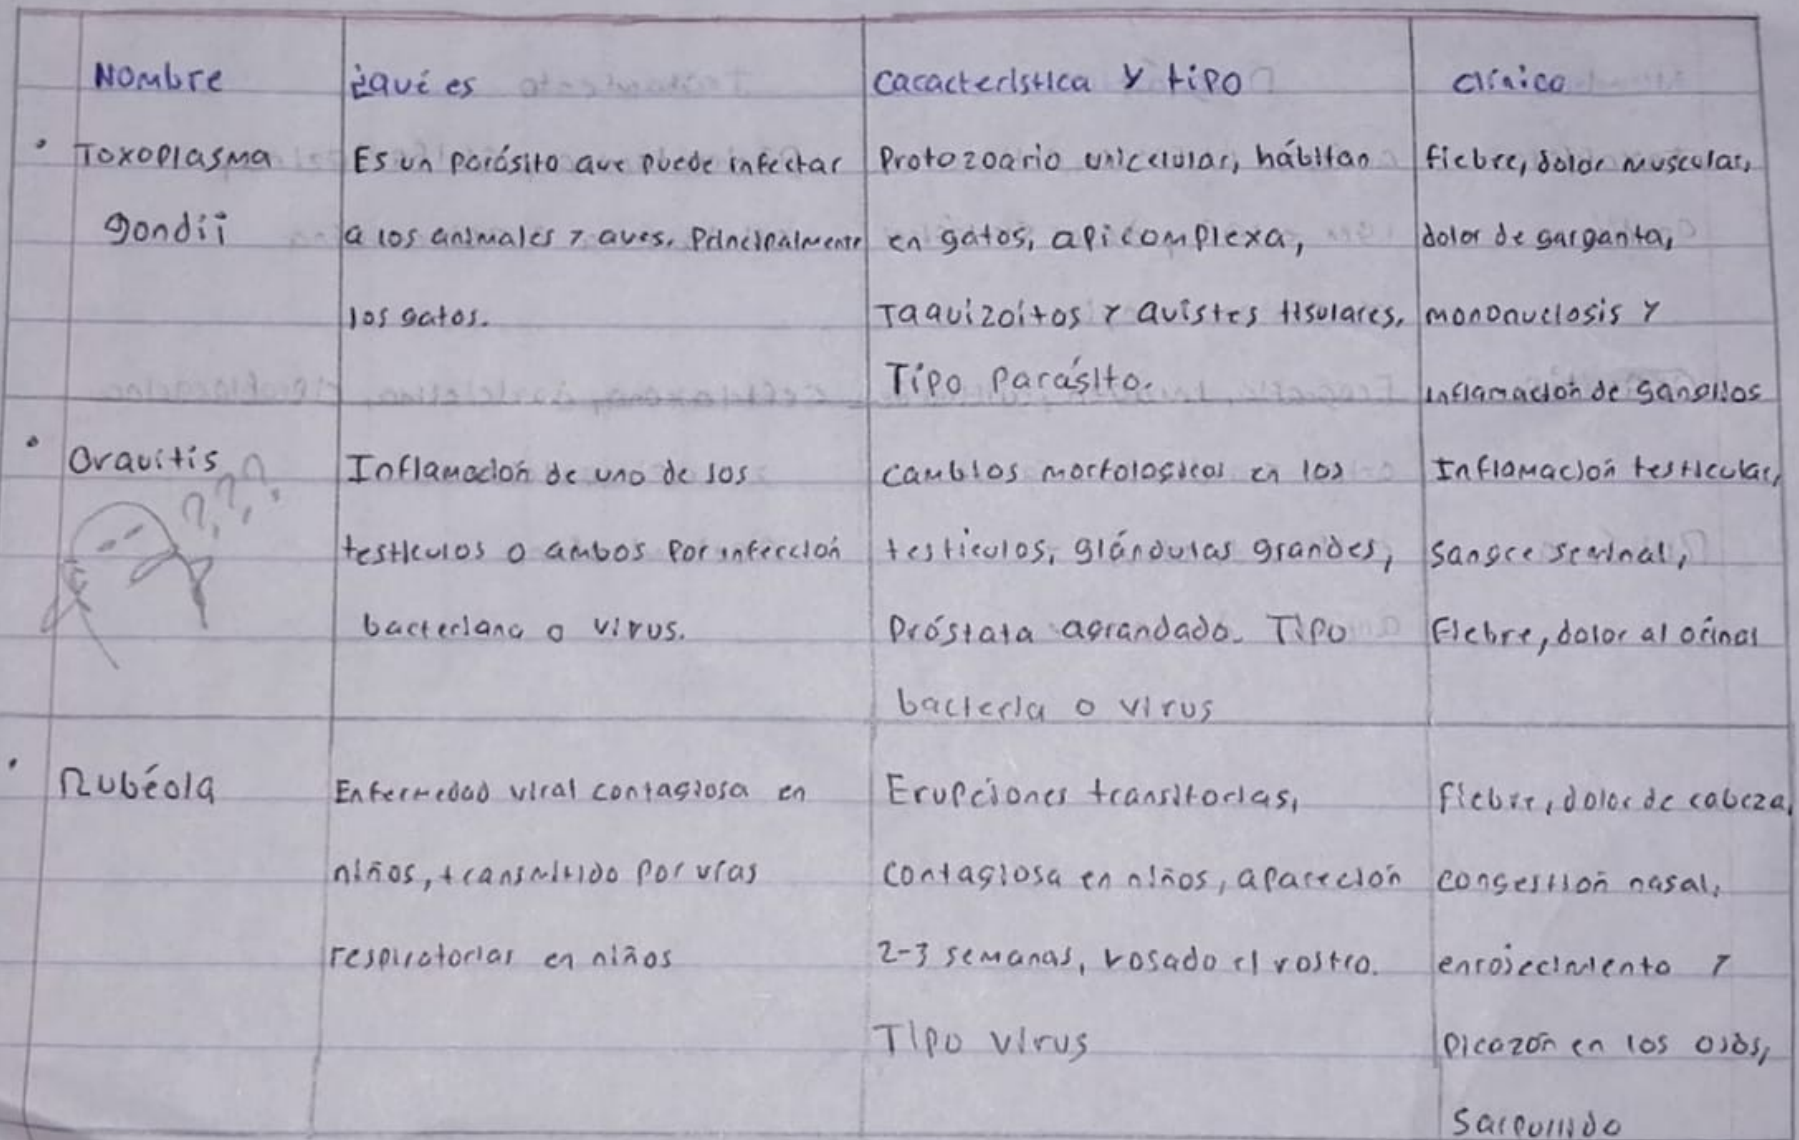 Nombre
¿qué es
cacacterística y tipo
clínico
Toxoplasma
gondii
Es un parásito que puede infectar
a los animales y aves. Principalmente
los gatos.
Protozoario unicelular, hábitan
en gatos, apicomplexa,
Taquizoítos y quistes tisulares.
Tipo Parásito.
fiebre, dolor muscular,
dolor de garganta,
mononuclosis y
inflamación de ganglios
Orquitis
???
Inflamación de uno de los
testículos o ambos por infección
bacteriana o virus.
cambios morfologicos en los
testiculos, glándulas grandes,
Próstata agrandado. Tipo
bacteria o virus
Inflamación testicular,
sangre seminal,
Fiebre, dolor al orinar
Rubéola
Enfermedad viral contagiosa en
niños, transmitido por vías
respiratorias en niños
Erupciones transitorias,
contagiosa en niños, apareción
2-3 semanas, rosado el rostro.
Tipo virus
fiebre, dolor de cabeza,
congestión nasal,
enrojecimiento y
picazón en los ojos,
sarpullido